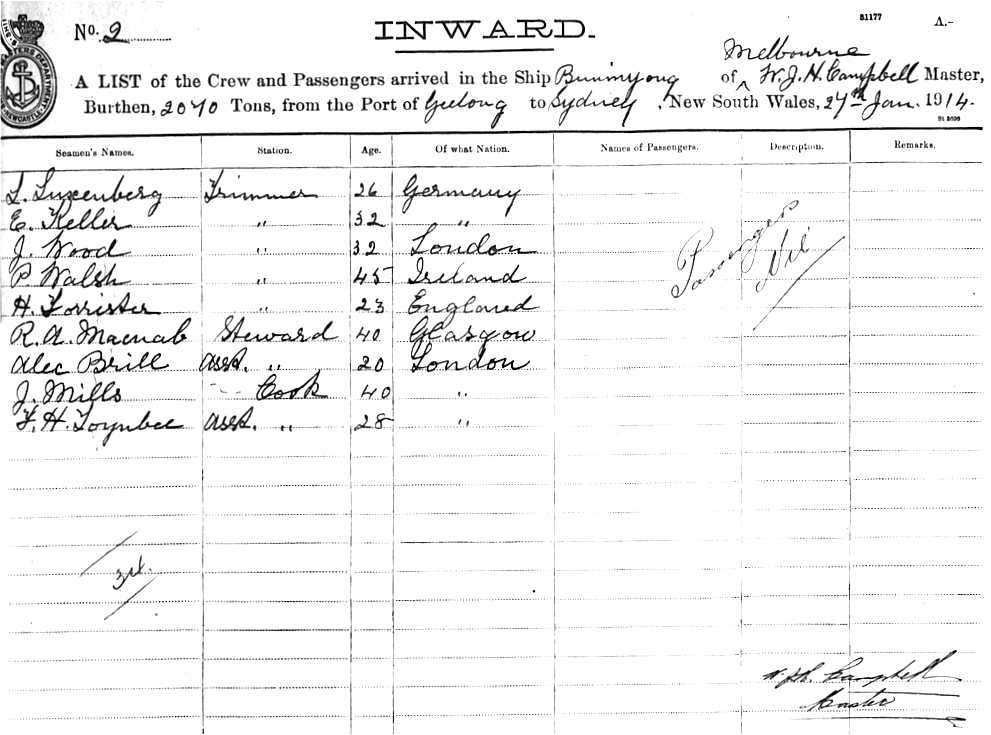 81177 A.-
No. 2 INWARD.
Melbourne
A LIST of the Crew and Passengers arrived in the Ship Buninyong of ^ W. J. H. Campbell Master,
Burthen, 2070 Tons, from the Port of Geelong to Sydney, New South Wales, 27th Jan. 1914.
Seamen's Names. Station. Age. Of what Nation. Names of Passengers. Description. Remarks.
L. Luxenberg Trimmer 26 Germany
E. Keller " 32 "
J. Wood " 32 London
P. Walsh " 45 Ireland
H. Forrister " 23 England
Passengers Nil
R. A. Macnab Steward 40 Glasgow
Alec Brill Asst. " 20 London
J. Mills Cook 40 "
F. H. Toynbee Asst. " 28 "
W. J. H. Campbell
Master